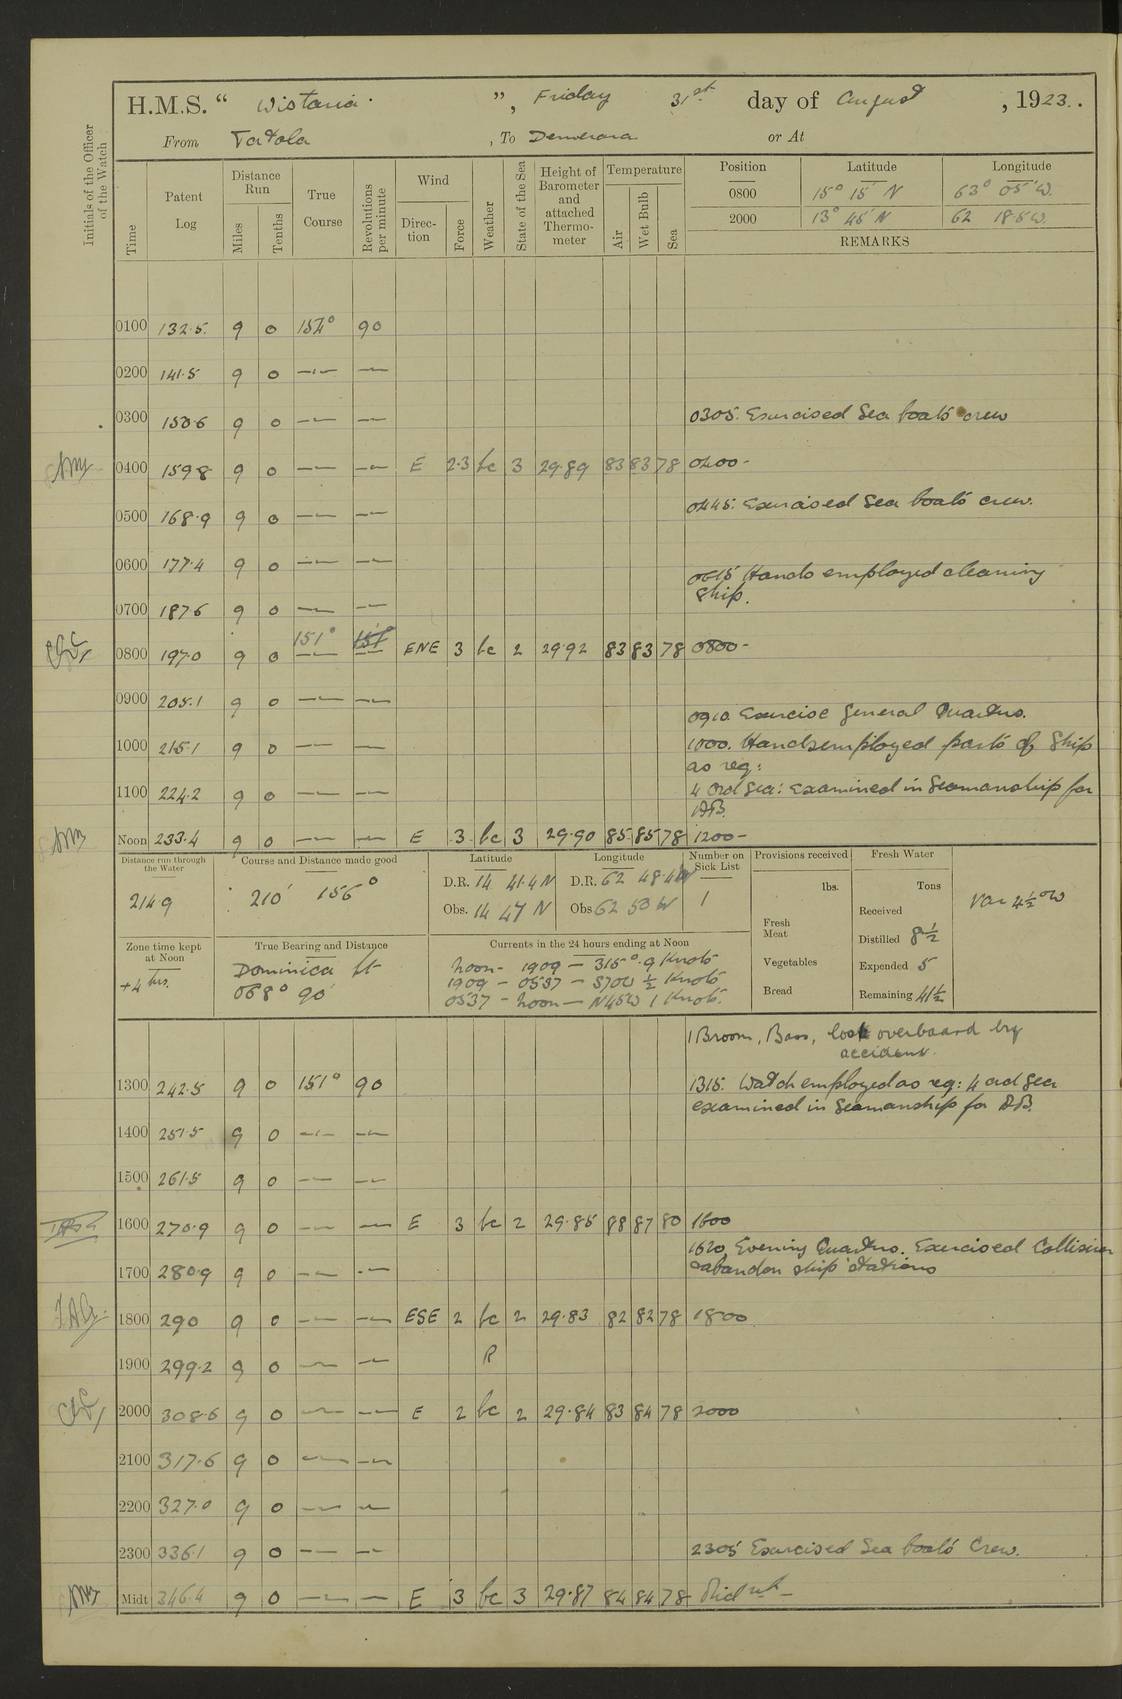 H.M.S. “ Wistaria. ”, Friday 31st day of August, 1923.
From Tortola , To Demerara or At
Initials of the Officer of the Watch
Time Patent Log Distance Run Miles Tenths True Course Revolutions per minute Wind Direction Force Weather State of the Sea Height of Barometer and attached Thermometer Temperature Air Wet Bulb Sea Position Latitude Longitude
0800 15° 15' N 63° 05' W.
2000 13° 45' N 62 18·5 W.
REMARKS
0100 132·5 9 0 154° 90
0200 141·5 9 0 — —
0300 150·6 9 0 — — 0305. Exercised Sea boats crew
0400 159·8 9 0 — — E 2·3 bc 3 29·89 83 83 78 0400-
0445. Exercised Sea boats crew.
0500 168·9 9 0 — —
0600 177·4 9 0 — —
0615 Hands employed cleaning
ship.
0700 187·6 9 0 — —
151° 151°
0800 197·0 9 0 — — ENE 3 bc 2 29·92 83 83 78 0800-
0900 205·1 9 0 — —
0910. Exercise General Quarters.
1000 215·1 9 0 — — 1000. Hands employed parts of Ship
as req:
1100 224·2 9 0 — — 4 Ord Sea: Examined in Seamanship for
AB.
Noon 233·4 9 0 — — E 3 bc 3 29·90 85 85 78 1200-
Distance run through the Water
214·9
Course and Distance made good
210' 156°
Latitude
D.R. 14 41·4 N
Obs. 14 47 N
Longitude
D.R. 62 48·4 W
Obs 62 53 W
Number on Sick List
1
Provisions received
lbs.
Fresh Meat
Vegetables
Bread
Fresh Water
Tons
Received
Distilled 8½
Expended 5
Remaining 41½
Var 4½° W
Zone time kept at Noon
+4 hrs.
True Bearing and Distance
Dominica lt
068° 90'
Currents in the 24 hours ending at Noon
Noon - 1909 — 315° ·9 Knots
1909 - 0537 - S70W ½ Knots
0537 - Noon — N45W 1 Knot.
1 Broom, Bass, lost overboard by
accident.
1300 242·5 9 0 151° 90 1315. Watch employed as req: 4 ord Sea
examined in Seamanship for AB.
1400 251·5 9 0 — —
1500 261·5 9 0 — —
1600 270·9 9 0 — — E 3 bc 2 29·85 88 87 80 1600
1620 Evening Quarters. Exercised Collision
& abandon ship stations
1700 280·9 9 0 — —
1800 290 9 0 — — ESE 2 bc 2 29·83 82 82 78 1800
1900 299·2 9 0 — — R
2000 308·6 9 0 — — E 2 bc 2 29·84 83 84 78 2000
2100 317·6 9 0 — —
2200 327·0 9 0 — —
2300 336·1 9 0 — — 2305 Exercised Sea boats Crew.
Midt 346·4 9 0 — — E 3 bc 3 29·87 84 84 78 Midnt-